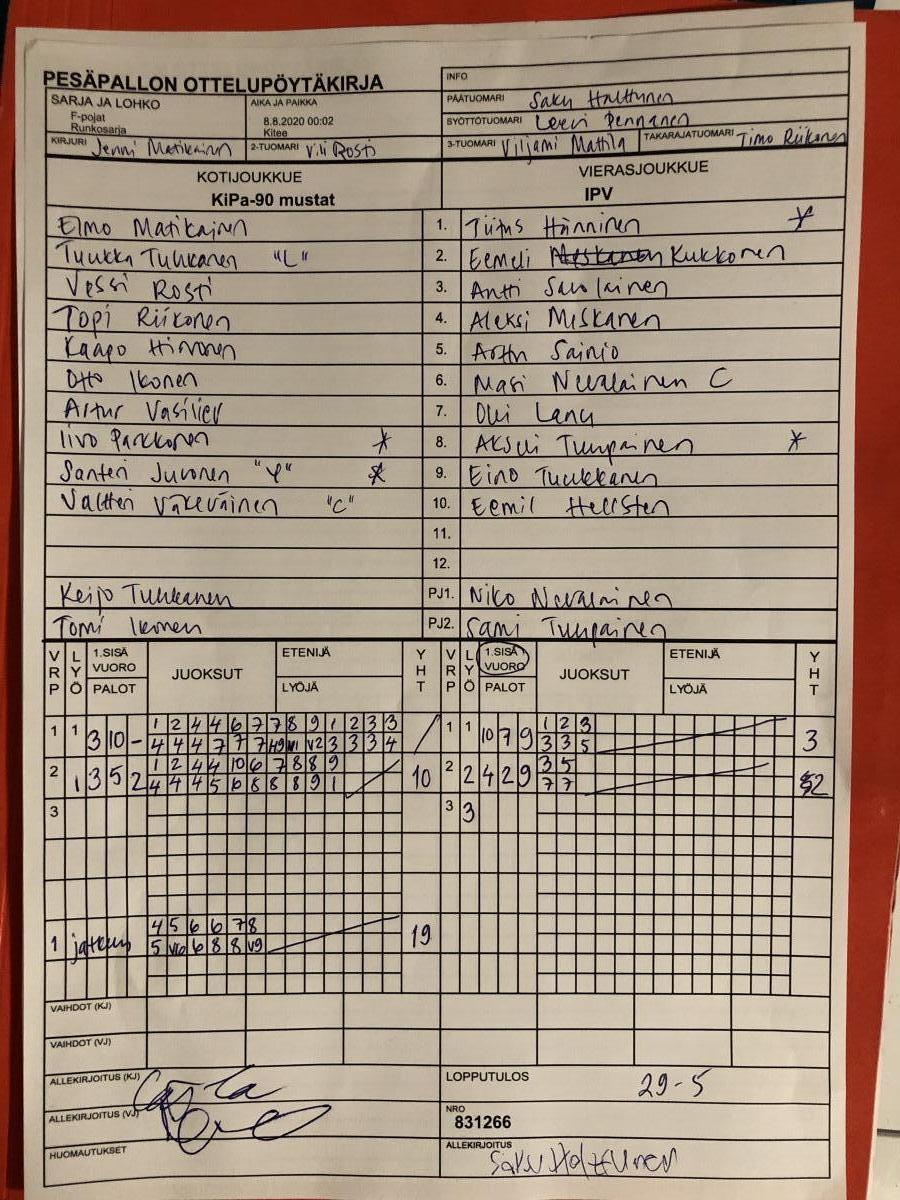 PESÄPALLON OTTELUPÖYTÄKIRJA
INFO
SARJA JA LOHKO
F-pojat
Runkosarja
AIKA JA PAIKKA
8.8.2020 00:02
Kitee
PÄÄTUOMARI Saku Holttunen
SYÖTTÖTUOMARI Leevi Pennanen
KIRJURI Jenni Matikainen 2-TUOMARI Vili Rosti 3-TUOMARI Viljami Mattila TAKARAJATUOMARI Timo Riikonen
KOTIJOUKKUE
KiPa-90 mustat
VIERASJOUKKUE
IPV
Elmo Matikainen 1. Tiitus Hänninen *
Tuukka Tuhkanen "L" 2. Eemeli Kukkonen
Vessi Rosti 3. Antti Savolainen
Topi Riikonen 4. Aleksi Miskanen
Kaapo Hirvonen 5. Arttu Sainio
Otto Ikonen 6. Masi Nevalainen C
Artur Vasiliev 7. Olli Lanu
Iivo Parkkonen * 8. Akseli Tuunainen *
Santeri Juvonen "Y" * 9. Eino Tuukkanen
Valtteri Väkeväinen "C" 10. Eemil Hellsten
11.
12.
Keijo Tuhkanen PJ1. Niko Nevalainen
Tomi Ikonen PJ2. Sami Tuunainen
VRP LYÖ 1.SISÄ VUORO PALOT JUOKSUT ETENIJÄ LYÖJÄ YHT VRP LYÖ 1.SISÄ VUORO PALOT JUOKSUT ETENIJÄ LYÖJÄ YHT
1 2 4 4 6 7 7 8 9 1 2 3 3 1 2 3
1 1 3 10 - 4 4 4 7 7 7 V1 V2 3 3 3 4 1 1 10 7 9 3 3 5 3
1 2 4 4 10 6 7 8 8 9 3 5
2 1 3 5 2 4 4 4 5 6 8 8 8 9 1 10 2 2 4 2 9 7 7 2
3 3 3
4 5 6 6 7 8
1 jatkuu 5 V6 6 8 8 V9 19
VAIHDOT (KJ)
VAIHDOT (VJ)
ALLEKIRJOITUS (KJ) LOPPUTULOS 29-5
ALLEKIRJOITUS (VJ) NRO
831266
HUOMAUTUKSET ALLEKIRJOITUS Saku Holttunen